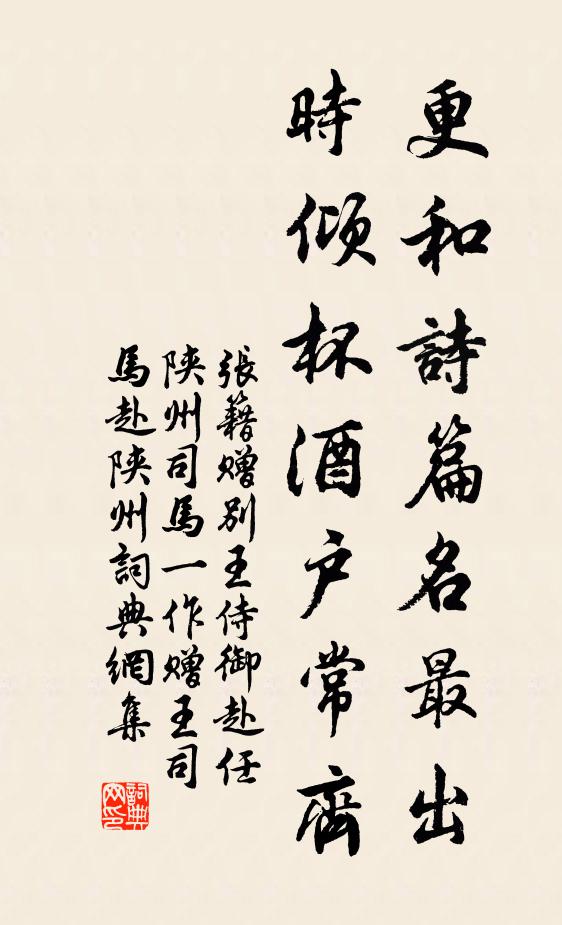 更和詩篇名最出
時傾杯酒户常齊
張籍贈別王侍御赴任
陝州司馬一作贈王司
馬赴陝州詞典網集
詞典网印